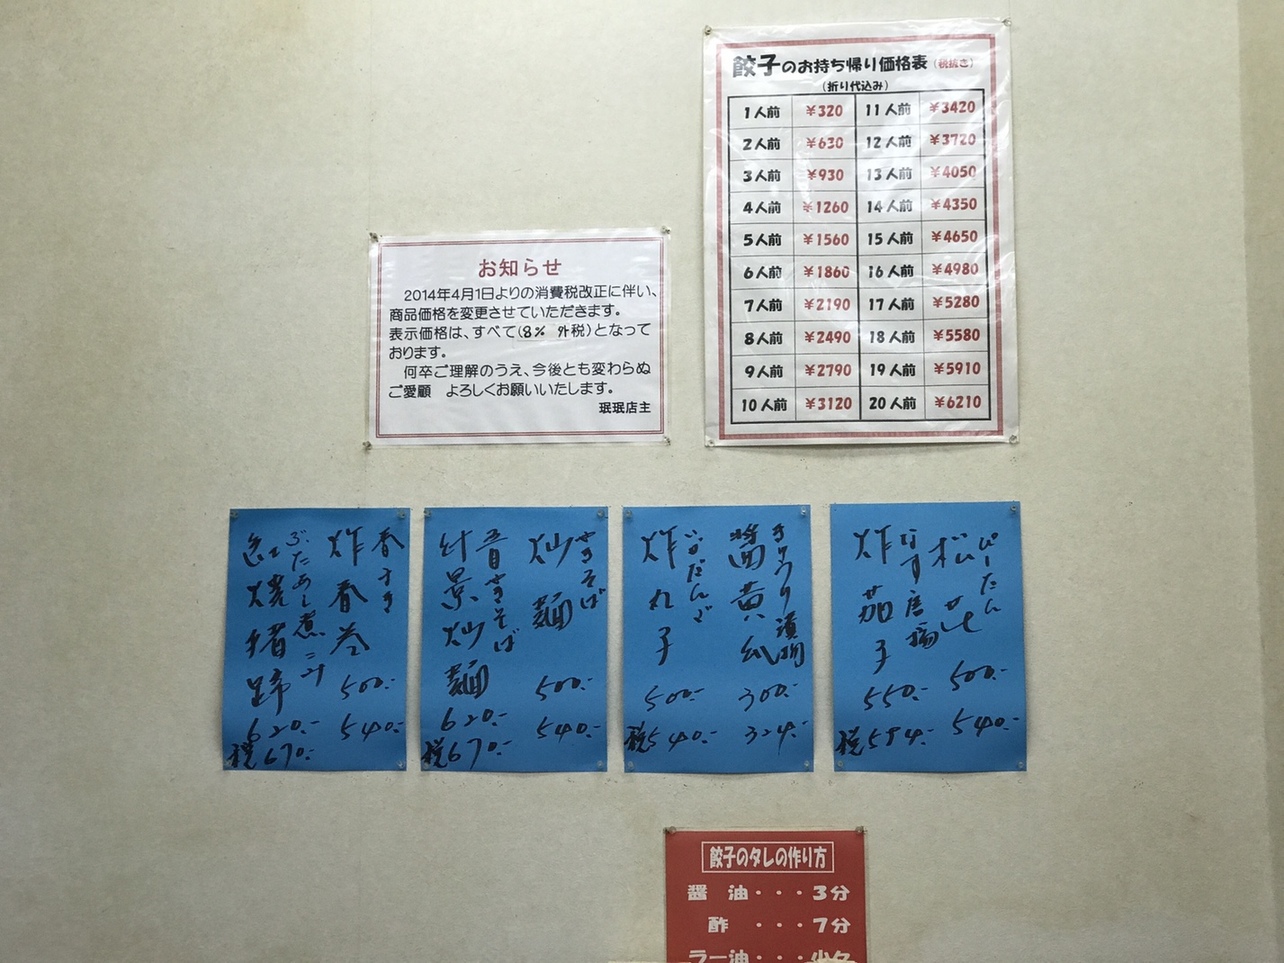 餃子のお持ち帰り価格表(税抜き)
(折り代込み)
1人前 ¥320 11人前 ¥3420
2人前 ¥630 12人前 ¥3720
3人前 ¥930 13人前 ¥4050
4人前 ¥1260 14人前 ¥4350
5人前 ¥1560 15人前 ¥4650
6人前 ¥1860 16人前 ¥4980
7人前 ¥2190 17人前 ¥5280
8人前 ¥2490 18人前 ¥5580
9人前 ¥2790 19人前 ¥5910
10人前 ¥3120 20人前 ¥6210
お知らせ
2014年4月1日よりの消費税改正に伴い、
商品価格を変更させていただきます。
表示価格は、すべて(8% 外税)となって
おります。
何卒ご理解のうえ、今後とも変わらぬ
ご愛顧 よろしくお願いいたします。
珉珉店主
ぴーたん
松花
500.-
540.-
なす唐揚
炸茄子
550.-
税594.-
きうり漬物
醤黄瓜
300.-
324.-
にくだんご
炸丸子
500.-
税540.-
やきそば
炒麺
500.-
540.-
五目やきそば
什景炒麺
620.-
税670.-
春まき
炸春巻
500.-
540.-
ぶたあし煮こみ
紅焼猪蹄
620.-
税670.-
餃子のタレの作り方
醤油・・・3分
酢・・・7分
ラー油・・・少々